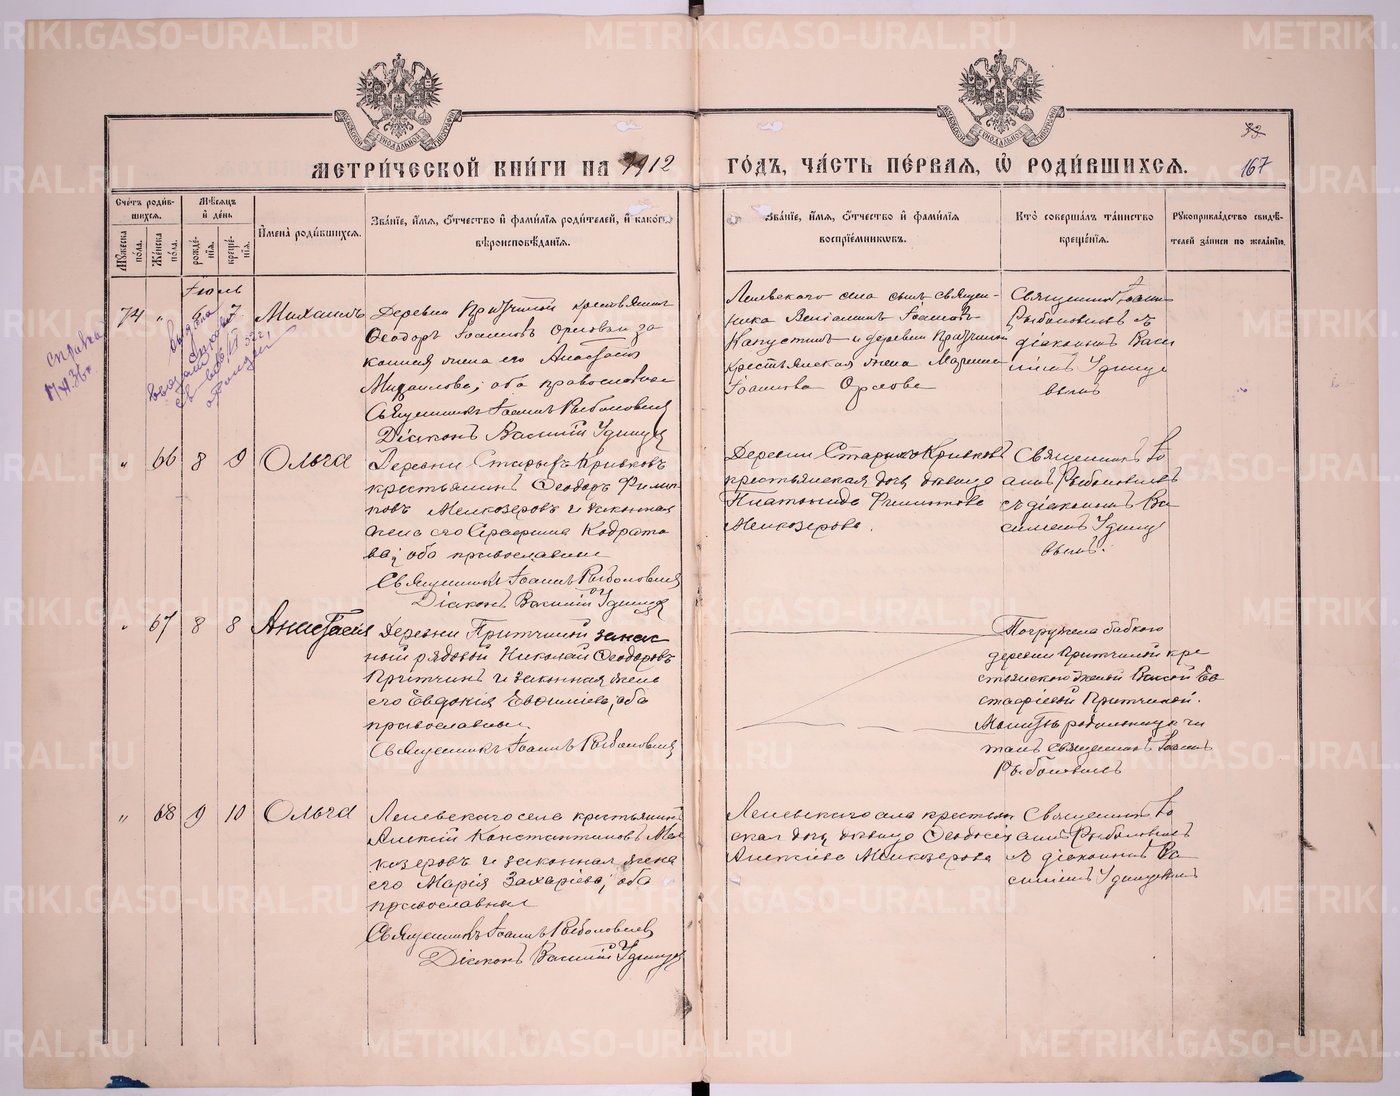 МЕТРИ́ЧЕСКОЙ КНИ́ГИ НА 1912 ГО́ДЪ, ЧА́СТЬ ПЕ́РВАЯ, Ѡ РОДИ́ВШИХСЯ.
33
167
Сче́тъ роди́вшихся.
Му́жеска по́ла.
Же́нска по́ла.
Мѣ́сяцъ и де́нь
рожде́нія.
креще́нія.
Имена̀ роди́вшихся.
Зва́ніе, и́мя, о́тчество и фами́лія роди́телей, и како́го вѣроисповѣ́данія.
Зва́ніе, и́мя, о́тчество и фами́лія воспріе́мниковъ.
Кто̀ соверша́лъ та́инство креще́нія.
Рукоприкла́дство свидѣ́телей за́писи по жела́нію.
Іюль
74 " Михаилъ
Справка
Ѳеодоръ Іоанновъ Орловъ и за
конная жена его Анастасія
Михаилова; оба православные
Священникъ Іоаннъ Рыболовлевъ
Діаконъ Василій Удинцев
села сынъ священ-
ника Веніаминъ Іоанновъ
Капустинъ и деревни
крестьянская жена Марина
Іоаннова Орлова
Священникъ Іоаннъ
Рыболовлевъ съ
діакономъ Васи
ліемъ Удинце
вымъ
" 66 8 9 Ольга
Деревни Старыхъ Кривковъ
крестьянинъ Ѳеодоръ Филип-
повъ Мелкозеровъ и законная
жена его Серафима Кодрато
ва; оба православные
Священникъ Іоаннъ Рыболовлев
Діаконъ Василій Удинцев
Деревни Старыхъ Кривковъ
крестьянская дочь дѣвица
Платонида Филиппова
Мелкозерова.
Священникъ Іо
аннъ Рыболовлевъ
съ діакономъ Ва
силіемъ Удинце
вымъ.
" 67 8 8 Анастасія
Деревни Притчиной запас
ный рядовой Николай Ѳеодоровъ
Притчинъ и законная жена
его Евдокія Евѳиміева; оба
православные.
Священникъ Іоаннъ Рыболовлев
Погружена бабкою
деревни Притчиной кре
стьянскою женой Вассой Ев
стафіевой Притчиной.
Молитвы родильницы чи
талъ священникъ Іоаннъ
Рыболовлевъ
" 68 9 10 Ольга
села крестьянинъ
Алексій Константиновъ Мел
козеровъ и законная жена
его Марія Захаріева; оба
православные
Священникъ Іоаннъ Рыболовлев
Діаконъ Василій Удинцев
села крестьян
ская дочь дѣвица Ѳеодосія
Алексіева Мелкозерова
Священникъ Іо
аннъ Рыболовлевъ
съ діакономъ Ва
силіемъ Удинцевымъ
METRIKI.GASO-URAL.RU